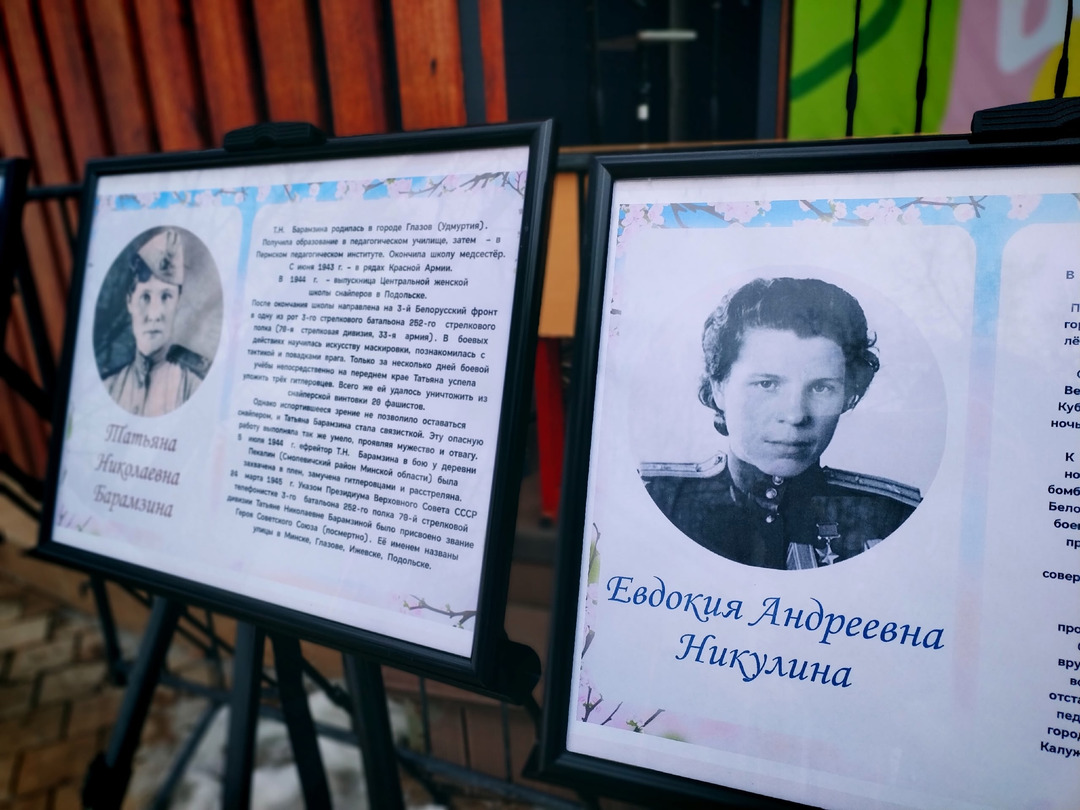 Татьяна
Николаевна
Барамзина
Т.Н. Барамзина родилась в городе Глазов (Удмуртия).
Получила образование в педагогическом училище, затем – в
Пермском педагогическом институте. Окончила школу медсестёр.
С июня 1943 г. – в рядах Красной Армии.
В 1944 г. – выпускница Центральной женской
школы снайперов в Подольске.
После окончания школы направлена на 3-й Белорусский фронт
в одну из рот 3-го стрелкового батальона 252-го стрелкового
полка (70-я стрелковая дивизия, 33-я армия). В боевых
действиях научилась искусству маскировки, познакомилась с
тактикой и повадками врага. Только за несколько дней боевой
учёбы непосредственно на переднем крае Татьяна успела
уложить трёх гитлеровцев. Всего же ей удалось уничтожить из
снайперской винтовки 20 фашистов.
Однако испортившееся зрение не позволило оставаться
снайпером, и Татьяна Барамзина стала связисткой. Эту опасную
работу выполняла так же умело, проявляя мужество и отвагу.
5 июля 1944 г. ефрейтор Т.Н. Барамзина в бою у деревни
Пекалин (Смолевичский район Минской области) была
захвачена в плен, замучена гитлеровцами и расстреляна.
24 марта 1945 г. Указом Президиума Верховного Совета СССР
телефонистке 3-го батальона 252-го полка 70-й стрелковой
дивизии Татьяне Николаевне Барамзиной было присвоено звание
Героя Советского Союза (посмертно). Её именем названы
улицы в Минске, Глазове, Ижевске, Подольске.
Евдокия Андреевна
Никулина
В
гор
лё
Ве
Куб
ночь
К
но
бомб
Бело
боев
пр
совер
про
вру
во
отста
пед
город
Калуж